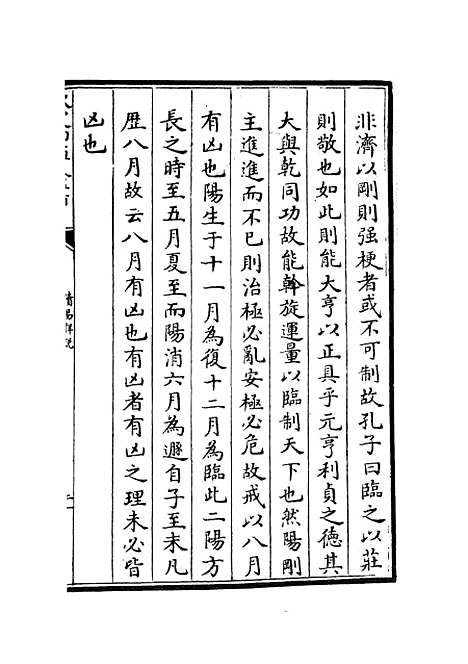 非濟以剛則强梗者或不可制故孔子曰臨之以莊
則敬也如此則能大亨以正具乎元亨利貞之德其
大與乾同功故能斡旋運量以臨制天下也然陽剛
主進進而不已則治極必亂安極必危故戒以八月
有凶也陽生于十一月為復十二月為臨此二陽方
長之時至五月夏至而陽消六月為遯自子至未凡
歴八月故云八月有凶也有凶者有凶之理未必皆
凶也
讀易詳說